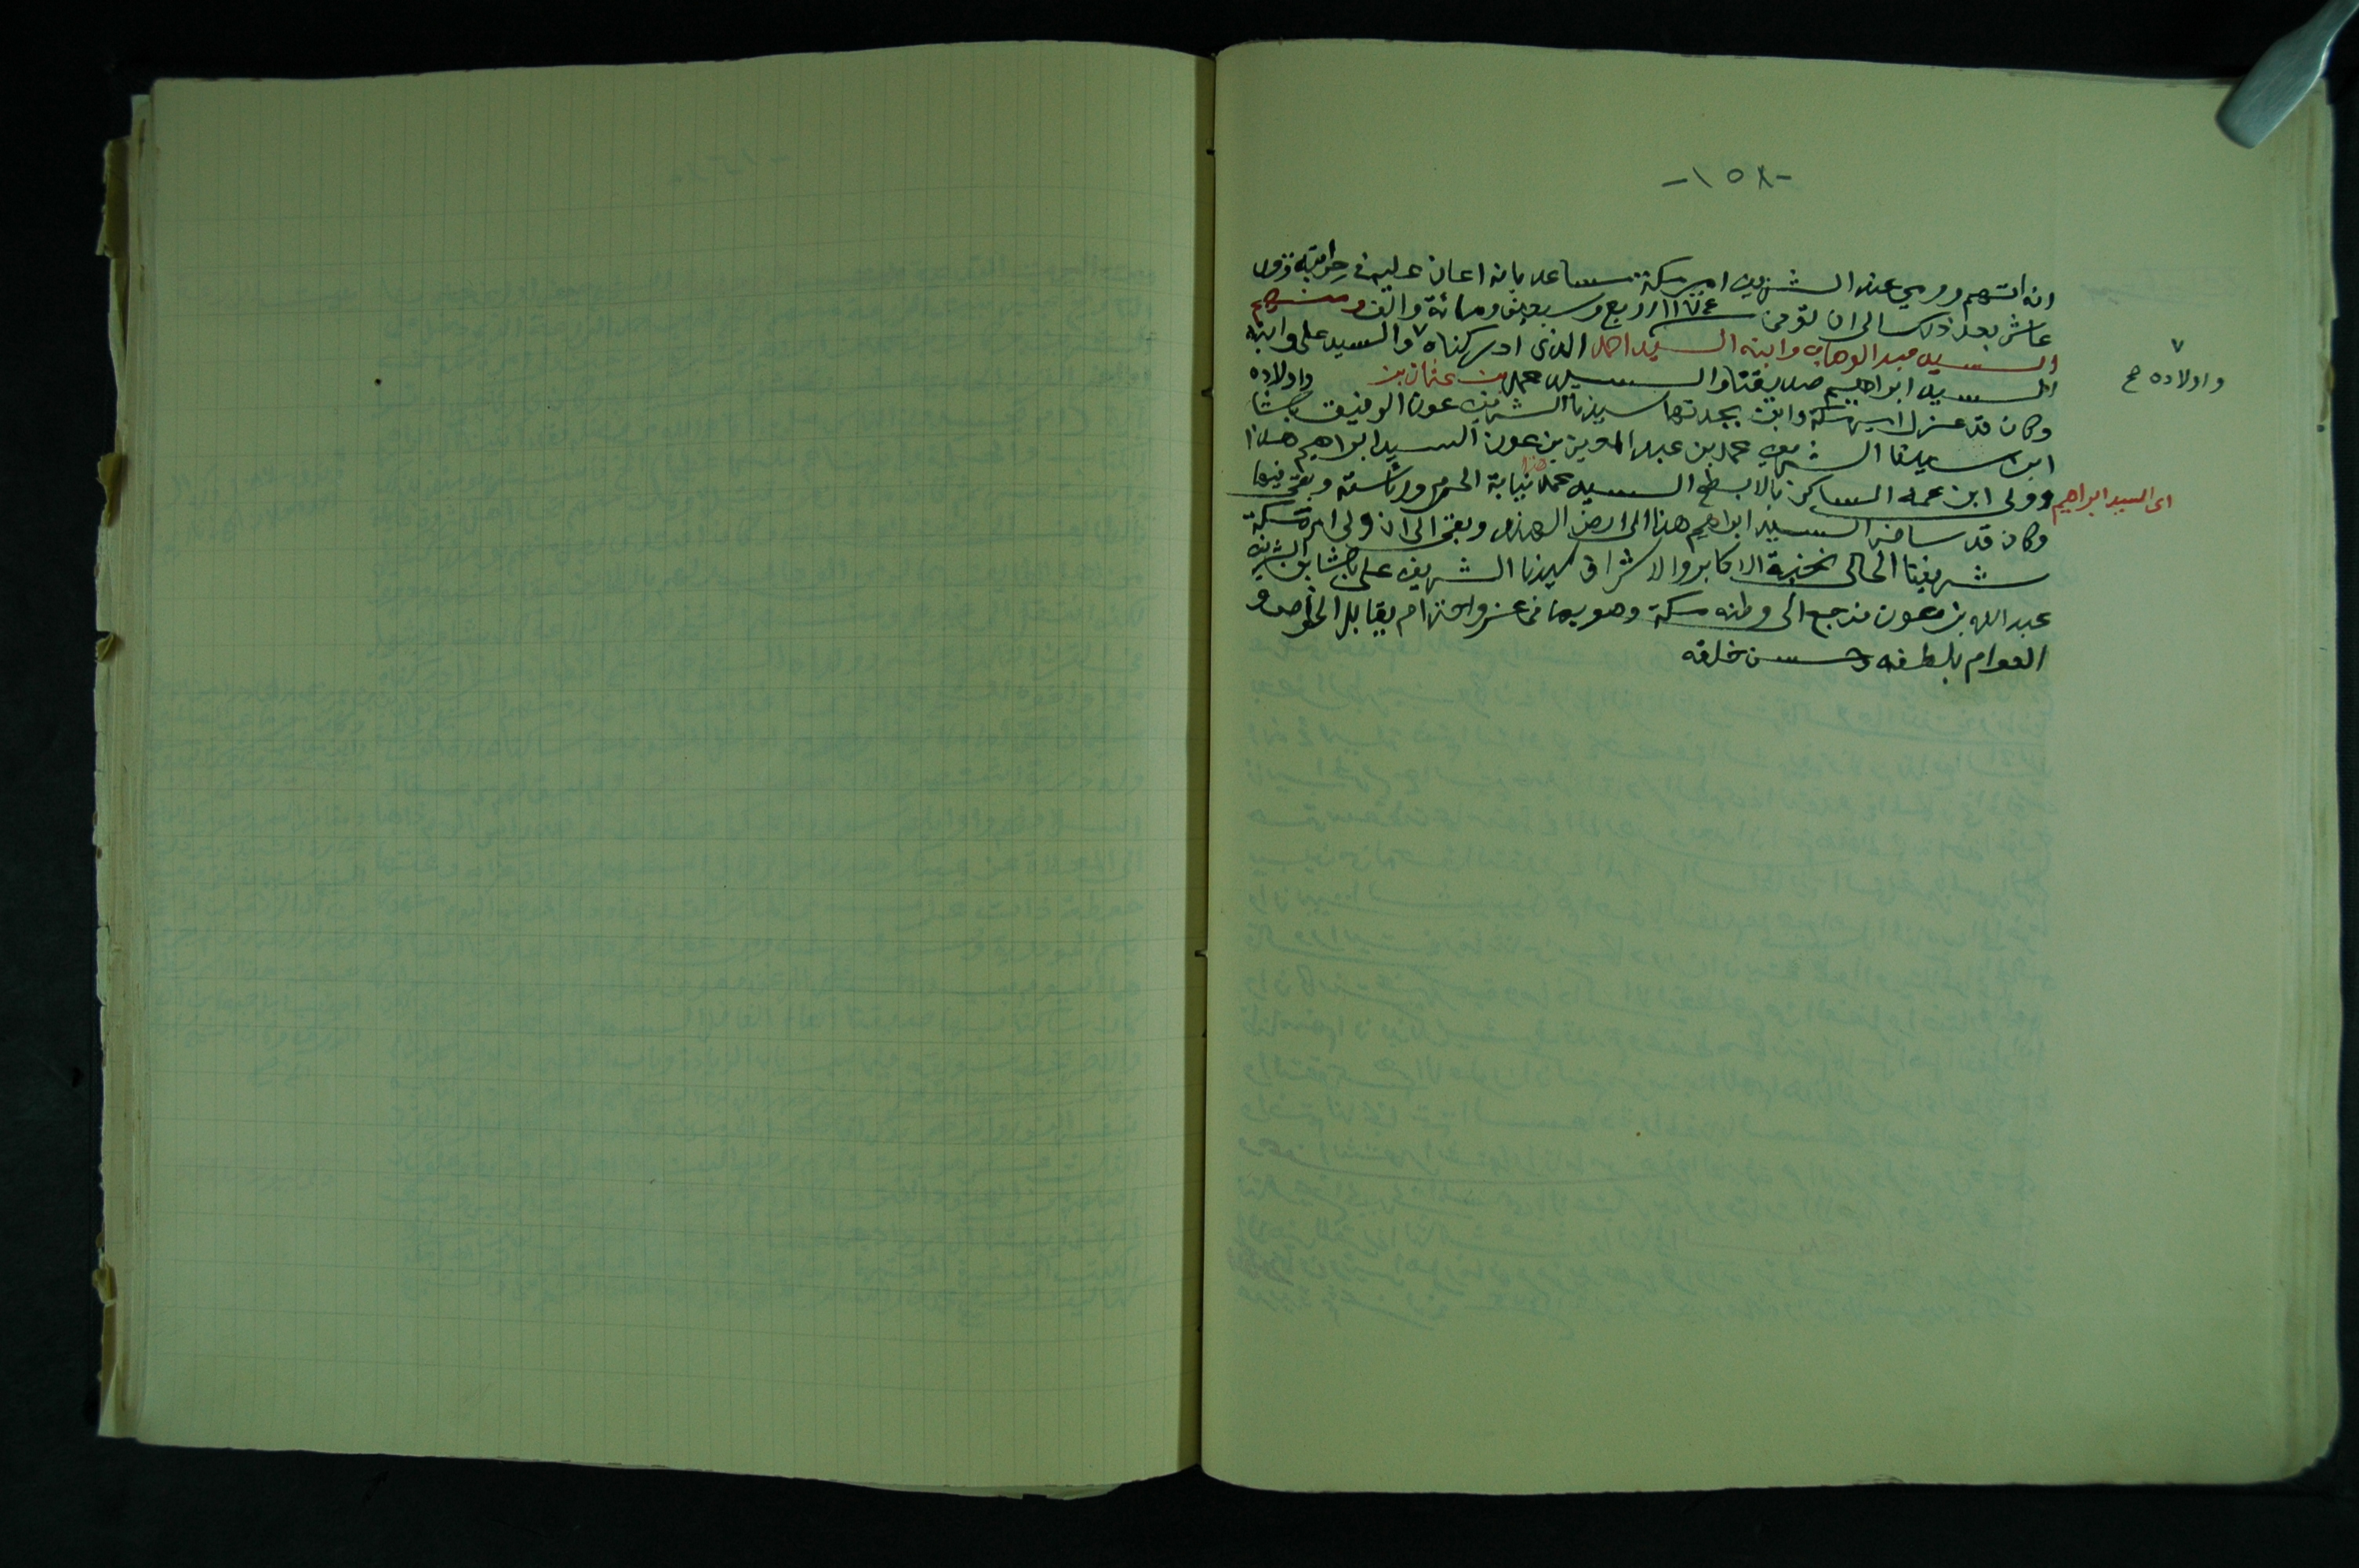 -١٥٨-
انه اتهم ورمي عند الشريف امير مكة مساعد بانه اعان عليه في حرابته فزور
عاش بعد ذلك الى ان توفى سنة ١١٧٤ اربع وسبعين ومائة والف ومنهم
السيد عبد الوهاب وابنه السيد احمد الذى ادركناه ٧ والسيد على وابنه
السيد ابراهيم صديقنا والسيد محمد بن عثمان بن واولاده
وكان قد عزل امير مكة وابن بجدتها سيدنا الشريف عون الرفيق باشا
ابن سيدنا الشريف محمد بن عبد المعين بن عون السيد ابراهيم هذا
وولى ابن عمه الساكن بالابطح السيد محمد هذا نيابة الحرم ورئاسته وبقى فيها
وكان قد سافر السيد ابراهيم هذا الى ارض الهند وبقى الى ان ولى امرة مكة
شريفنا الحالى نخبة الاكابر والاشراف سيدنا الشريف على باشا بن الشريف
عبد الله بن عون فرجع الى وطنه مكة وهو بها فى عز واحترام يقابل الخواص و
العوام بلطفه وحسن خلقه
٧
واولاده صح
اى السيد ابراهيم